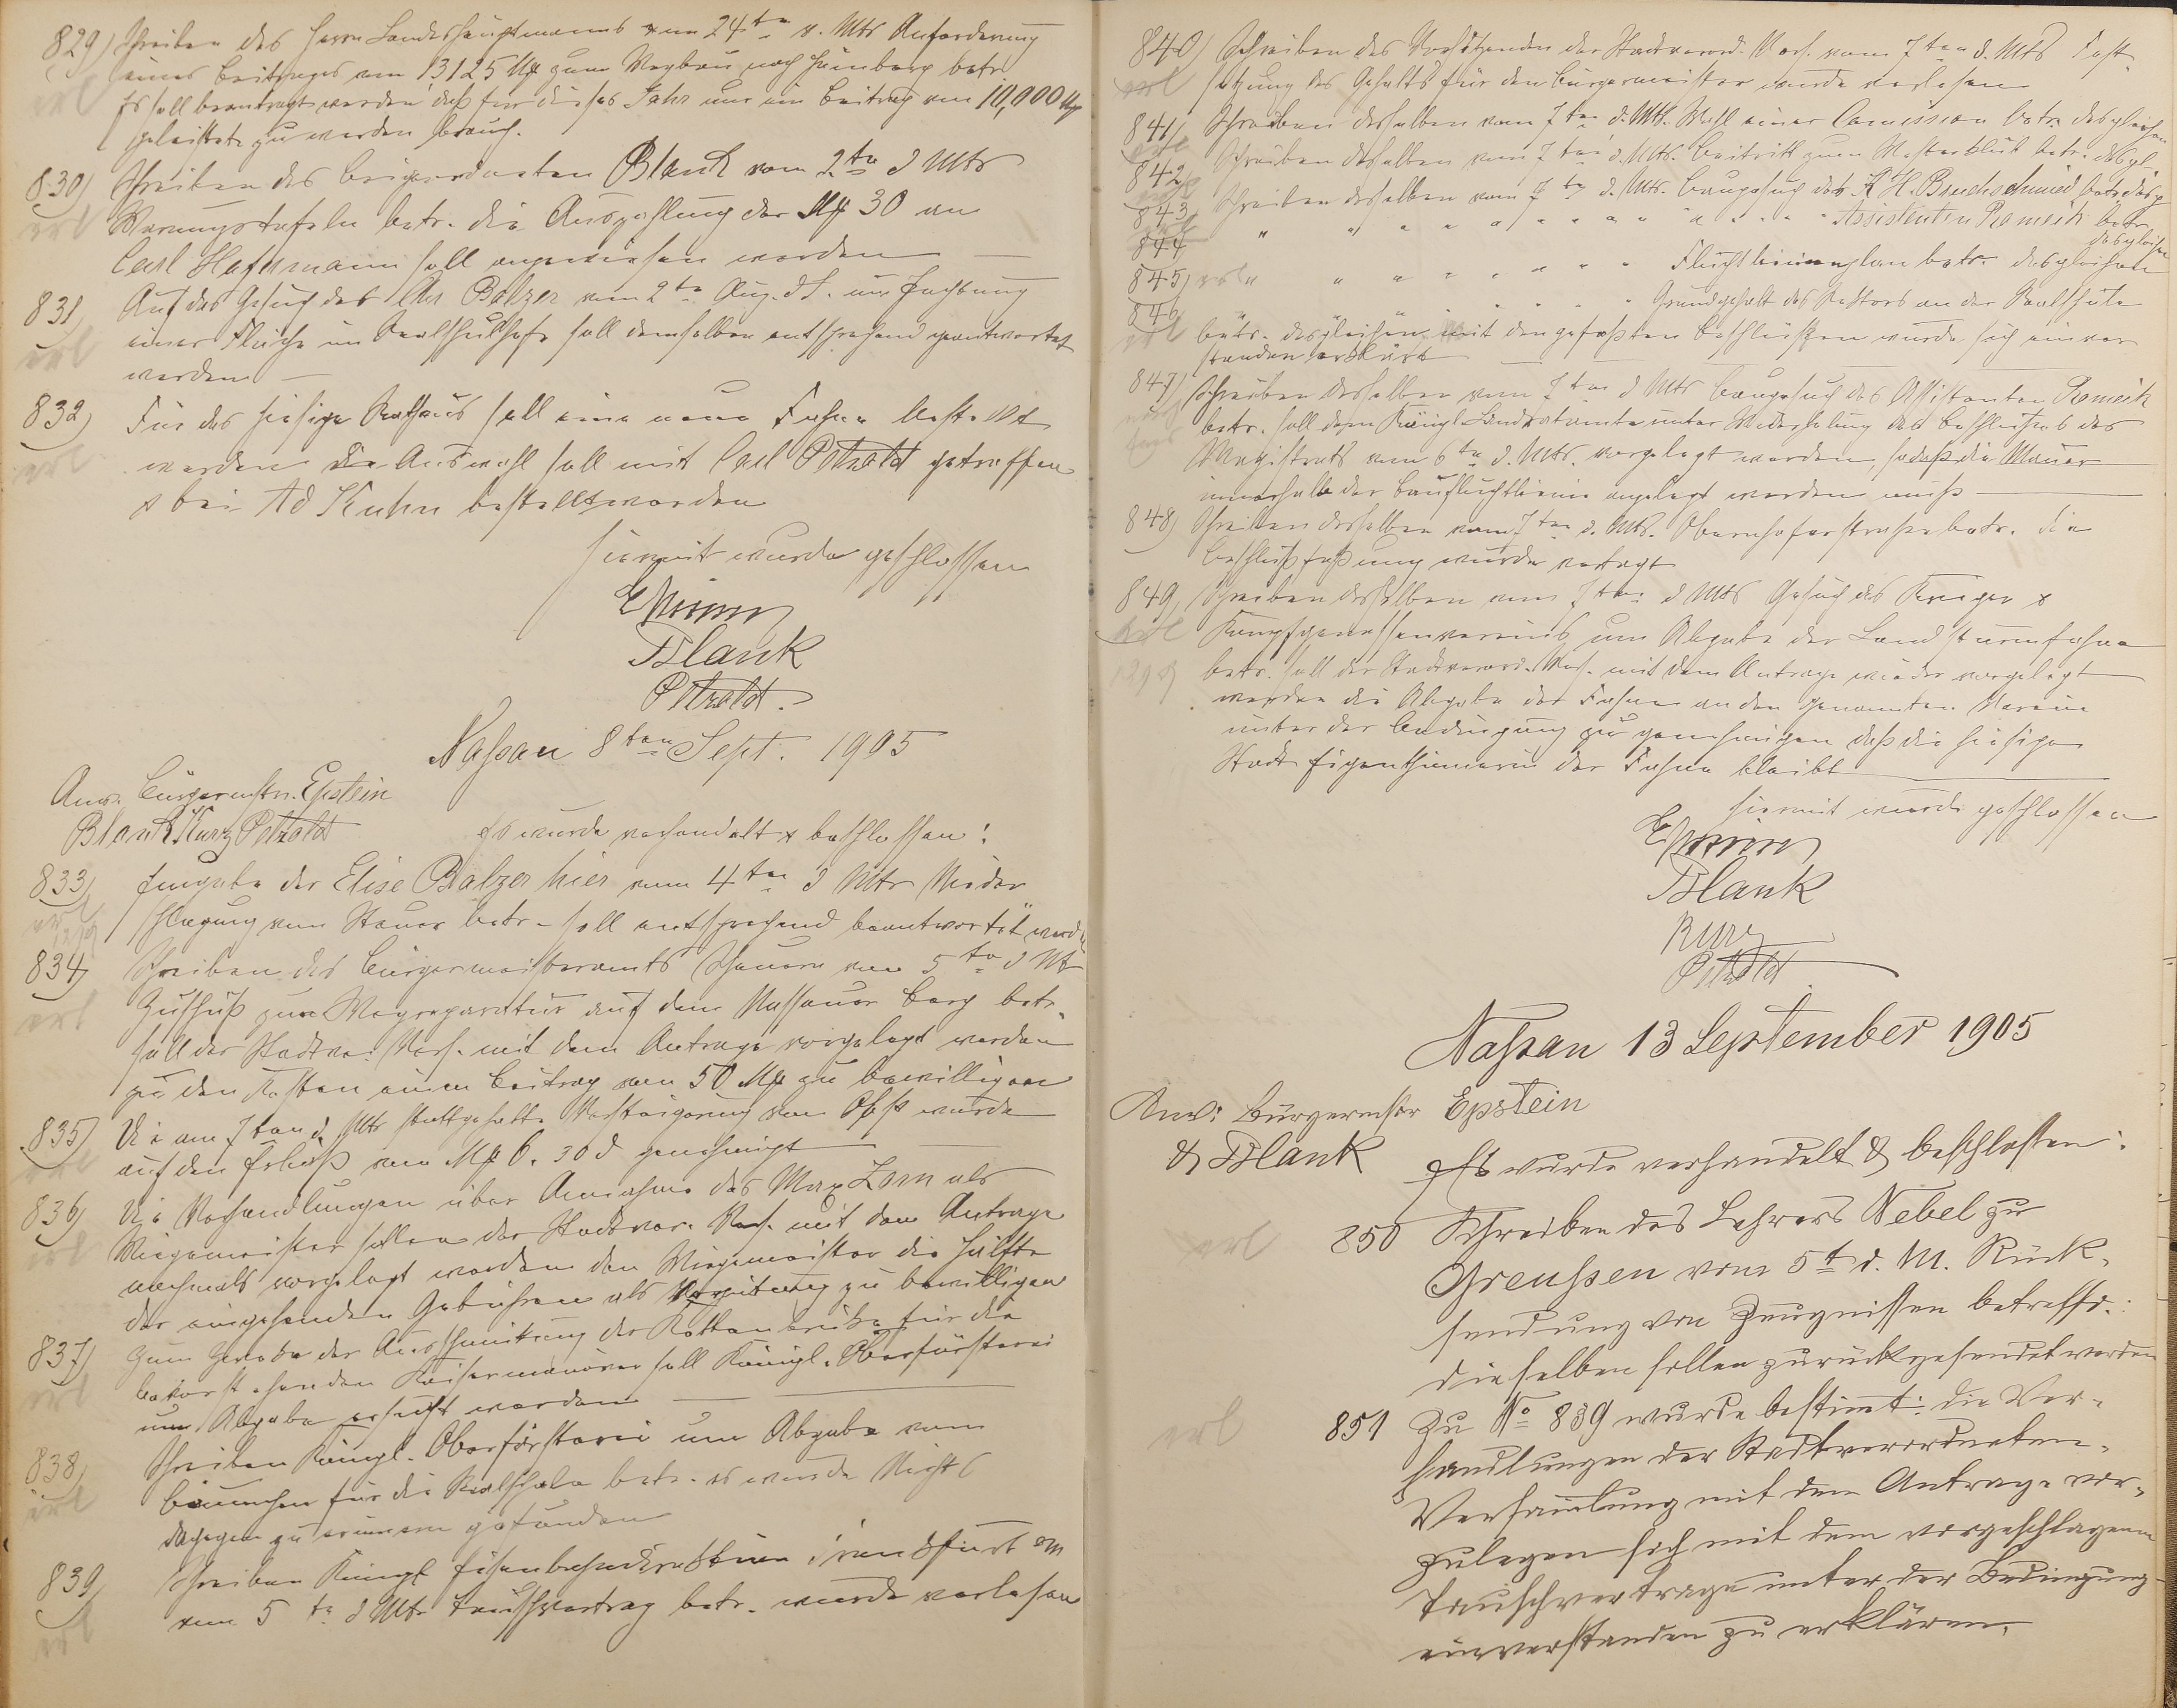 829) Schreiben des Herrn Landeshauptmanns vom 24ten v. Mts Anforderung
eines Beitrages von 13125 M zum Wegbau nach Hömberg betr.
Es soll beantragt werden daß für dieses Jahr nur ein Beitrag von 10,000 M
geleistet zu werden brauch.
830) Schreiben des Beigeordneten Blank vom 2ten d Mts
erl Warnungstafeln betr. die Auszahlung der M 30 an
Carl Hafermann soll angewiesen werden
831 Auf das Gesuch des Chr Balzer vom 2ten Aug. d J. um Pachtung
erl einer Fläche im Realschulhofe soll demselben entsprechend geantwortet
werden
832) Für das hiesige Rathaus soll eine neue Fahne bestellt
erl werden die Auswahl soll mit Carl Petzold getroffen
& bei Ad Kuhn bestellt werden
hiermit wurde geschlossen
Epstein
Blank
Petzold.
Nassau 8ten Sept. 1905
Anw. Bürgermstr. Epstein
Blank Kurz Petzold
Es wurde verhandelt & beschlossen:
833) Eingabe der Elise Balzer hier vom 4ten d Mts Nieder
erl schlagung von Steuer betr. soll entsprechend beantwortet werden
834) Schreiben des Bürgermeisteramts Scheuern vom 5ten d Mts
Zuschuß zur Wegreparatur auf dem Nassauer Berg betr.
erl soll der Stadtver. Vers. mit dem Antrage vorgelegt werden
zu den Kosten einen Beitrag von 50 M zu bewilligen
835) Die am 7ten d. Mts stattgehabte Versteigerung von Obst wurde
erl auf den Erlös von M 6. 30 d genehmigt
836) Die Verhandlungen über Annahme des Max Zorn als
erl Wiegemeister sollen der Stadtver. Vers. mit dem Antrage
nochmals vorgelegt werden dem Wiegemeister die Hälfte
der eingehenden Gebühren als Vergütung zu bewilligen
837) Zum Zwecke der Ausschmückung der Kettenbrücke für die
erl bevorstehenden Kaisermanöver soll Königl. Oberförsterei
um Abgabe ersucht werden
838) Schreiben Königl. Oberförsterei um Abgabe von
erl Bäumchen für die Realschule betr. es wurde Nichts
dagegen zu erinnern gefunden
839) Schreiben Königl Eisenbahndirektion Frankfurt a/M
erl vom 5ten d Mts Tauschvertrag betr. wurde verlesen
840) Schreiben des Vorsitzenden der Stadtverord. Vers. vom 7ten d. Mts Fest
erl setzung des Gehalts für den Bürgermeister wurde verlesen
841) Schreiben desselben vom 7ten d. Mts. Wahl einer Comission betr. desgleichen
842) Schreiben desselben vom 7ten d. Mts. Beitritt zum betr. desgl.
843) Schreiben desselben vom 7ten d. Mts. Baugesuch des K H. Bruchschmied betr. desgl
844 " " " " " " " " Assistenten Romeick betr. desgleichen
845) erl " " " " " " " Fluchtlinienplan betr. desgleichen
846 " " " " Grundgehalt des Rektors an der Realschule
erl betr. desgleichen mit den gefaßten Beschlüßen wurde sich einver
standen erklärt
847) Schreiben desselben vom 7ten d Mts Baugesuch des Assistenten Romeick
betr. soll dem Königl. Landratsamte unter Wiederholung des Beschlußes des
Magistrats vom 6ten d. Mts. vorgelegt werden, sodaß die Mauer
innerhalb der Baufluchtlinie angelegt werden muß
848) Schreiben desselben vom 7ten d. Mts. Obernhoferstraße betr. die
Beschlußfaßung wurde vertagt
849) Schreiben desselben vom 7ten d Mts Gesuch des Krieger &
erl Kampfgenossenvereins um Abgabe der Landsturmfahne
betr. soll der Stadtverord. Vers. mit dem Antrage wieder vorgelegt
werden die Abgabe der Fahne an den genannten Verein
unter der Bedingung zu genehmigen daß die hiesige
Stadt Eigenthümerin der Fahne bleibt
hiermit wurde geschlossen
Epstein
Blank
Kurz
Petzold
Nassau 13 September 1905
Anw: Bürgermstr Epstein
& Blank Es wurde verhandelt & beschlossen:
erl 850 Schreiben des Lehrers Nebel zu
Greussen vom 5t d. M. Rück-
sendung von Zeugnissen betreffd.:
dieselben sollen zurückgesendet werden
erl 851 Zu No 839 wurde bestimt: die Ver-
handlungen der Stadtverordneten-
Versamlung mit dem Antrage vor-
zulegen sich mit dem vorgeschlagenen
Tauschvertrage unter der Bedingung
einverstanden zu erklären,